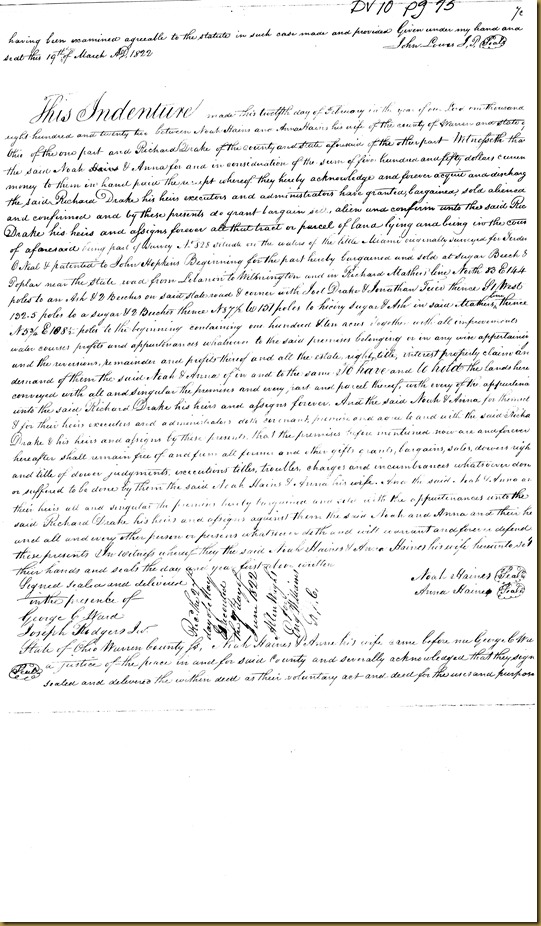 DV 10 pg 75
having been examined agreeable to the statute in such case made and provided Given under my hand and
seal this 19th of March AD, 1822 John Lowes J.P. Seal
This Indenture made this twelfth day of February in the year of our Lord one thousand
eight hundred and twenty two between Noah Hains and Anna Hains his wife of the county of Warren and state of
Ohio of the one part and Richard Drake of the county and state aforesaid of the other part Witnesseth tha
the said Noah Hains & Anna for and in consideration of the sum of five hundred and fifty dollars curren
money to them in hand paid the receipt whereof they hereby acknowledge and forever acquit and discharg
the said Richard Drake his heirs executors and administrators have granted, bargained, sold aliened
and confirmed and by these presents do grant bargain sell, alien and confirm unto the said Ric
Drake his heirs and assigns forever all that tract or parcel of land lying and being in the coun
of aforesaid being part of Survey No 828 situate on the waters of the little Miami originally surveyed for
O Neal & patented to John Hopkins Beginning for the part hereby bargained and sold at sugar Beech &
Poplar near the state road from Lebanon to Wilmington and in Richard Mathers line North 83 E 144
poles to an Ash & 2 Beeches on said state road & corner with Drake & Jonathan thence West
132.5 poles to a sugar & 2 Beeches thence S 87¾ W 151 poles to hicory sugar & Ash in said Mathers line thence
N 5¾ E 118½ poles to the beginning containing one hundred & ten acres Together with all improvements
water courses profits and appurtenances whatever to the said premises belonging or in any wise appertaini
and the reversions, remainder and profits thereof and all the estate, right, title, interest property claim an
demand of them the said Noah & Anna of in and to the same To have and to hold the lands here
conveyed with all and singular the premises and every part and parcel thereof, with every of the appurtena
unto the said Richard Drake his heirs and assigns forever. And the said Noah & Anna for themsel
& for their heirs executors and administrators doth covenant promise and agree to and with the said Richa
Drake & his heirs and assigns by these presents, that the premises before mentioned now are and forever
hereafter shall remain free of and from all former and other gifts grants, bargains, sales, dowers righ
and title of dower judgments, executions titles, troubles charges and incumbrances whatsoever don
or suffered to be done by them the said Noah Hains & Anna his wife. And the said Noah & Anna an
their heirs all and singular the premises hereby bargained and sold with the appurtenances unto the
said Richard Drake his heirs and assigns against them the said Noah and Anna and their he
and all and every other person or persons whatsoever doth and will warrant and forever defend
these presents In witness whereof they the said Noah Haines & Anna Haines his wife hereunto set
their hands and seals the day and year first above written
Signed sealed and delivered Noah Haines Seal
in the presence of Anna Haines Seal
George C Ward
Joseph Rodgers Jr.
June 1822
State of Ohio Warren County ss, Noah Haines & Anne his wife came before me George C Wa
Seal a justice of the peace in and for said County and severally acknowledged that they sign
sealed and delivered the within deed as their voluntary act and deed for the uses and purpos